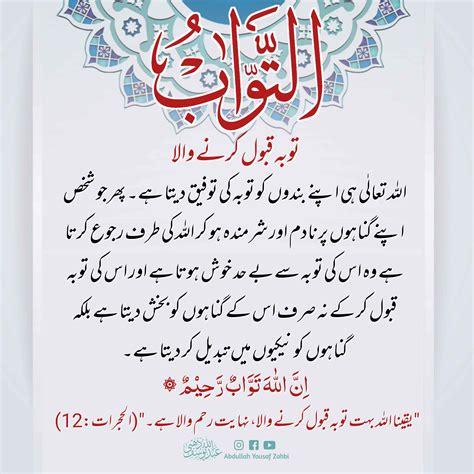 التَّوَّابُ
توبہ قبول کرنے والا
اللہ تعالٰی ہی اپنے بندوں کو توبہ کی توفیق دیتا ہے۔ پھر جو شخص
اپنے گناہوں پر نادم اور شرمندہ ہو کر اللہ کی طرف رجوع کرتا
ہے وہ اس کی توبہ سے بے حد خوش ہوتا ہے اور اس کی توبہ
قبول کر کے نہ صرف اس کے گناہوں کو بخش دیتا ہے بلکہ
گناہوں کو نیکیوں میں تبدیل کر دیتا ہے۔
اِنَّ اللّٰهَ تَوَّابٌ رَّحِيْمٌ ۞
"یقینا اللہ بہت توبہ قبول کرنے والا، نہایت رحم والا ہے۔" (الحجرات: 12)
Abdullah Yousaf Zahbi